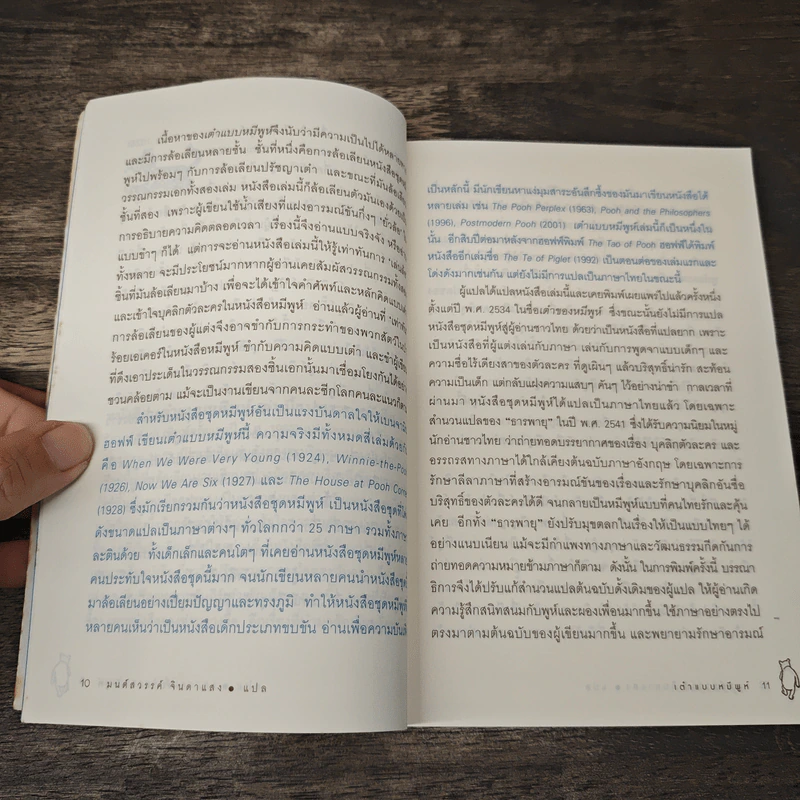 เนื้อหาของเต๋าแบบหมีพูห์จึงนับว่ามีความเป็นไปได้หลาย
และมีการล้อเลียนหลายชั้น ชั้นที่หนึ่งคือการล้อเลียนหนังสือชุด
พูห์ไปพร้อมๆ กับการล้อเลียนปรัชญาเต๋า และขณะที่มันล้อเลีย
วรรณกรรมเอกทั้งสองเล่ม หนังสือเล่มนี้ก็ล้อเลียนตัวมันเอง
ชั้นที่สอง เพราะผู้เขียนใช้น้ำเสียงที่แฝงอารมณ์ขันกึ่งๆ "ยั่วล้อ"
การอธิบายความคิดตลอดเวลา เรื่องนี้จึงอ่านแบบจริงจัง หรือ
แบบขำๆ ก็ได้ แต่การจะอ่านหนังสือเล่มนี้ให้รู้เท่าทันการ
ทั้งหลาย จะมีประโยชน์มากหากผู้อ่านเคยสัมผัสวรรณกรรมทั้ง
ชิ้นที่มันล้อเลียนมาบ้าง เพื่อจะได้เข้าใจคำศัพท์และหลักคิดแบบ
และเข้าใจบุคลิกตัวละครในหนังสือหมีพูห์ อ่านแล้วผู้อ่านที่
การล้อเลียนของผู้แต่งจึงอาจขำกับการกระทำของพวกสัตว์ใน
ร้อยเอเคอร์ในหนังสือหมีพูห์ ขำกับความคิดแบบเต๋า และขำผู้เขีย
ที่ดึงเอาประเด็นในวรรณกรรมสองชิ้นเอกนั้นมาเชื่อมโยงกันได้อย่าง
ชวนคล้อยตาม แม้จะเป็นงานเขียนจากคนละซีกโลกคนละแนวก็ตาม
สำหรับหนังสือชุดหมีพูห์อันเป็นแรงบันดาลใจให้เบนจามิน
ฮอฟฟ์ เขียนเต๋าแบบหมีพูห์นี้ ความจริงมีทั้งหมดสี่เล่มด้วยกัน
คือ When We Were Very Young (1924), Winnie-the-Poo
(1926), Now We Are Six (1927) และ The House at Pooh Corne
(1928) ซึ่งมักเรียกรวมกันว่าหนังสือชุดหมีพูห์ เป็นหนังสือชุดที่
ดังขนาดแปลเป็นภาษาต่างๆ ทั่วโลกกว่า 25 ภาษา รวมทั้งภาษา
ละตินด้วย ทั้งเด็กเล็กและคนโตๆ ที่เคยอ่านหนังสือชุดหมีพูห์หลาย
คนประทับใจหนังสือชุดนี้มาก จนนักเขียนหลายคนนำหนังสือชุดนี้
มาล้อเลียนอย่างเปี่ยมปัญญาและทรงภูมิ ทำให้หนังสือชุดหมีพูห์
หลายคนเห็นว่าเป็นหนังสือเด็กประเภทขบขัน อ่านเพื่อความบันเทิง
10 มนต์สวรรค์ จินดาแสง ● แปล
เป็นหลักนี้ มีนักเขียนหาแง่มุมสาระอันลึกซึ้งของมันมาเขียนหนังสือได้
หลายเล่ม เช่น The Pooh Perplex (1963), Pooh and the Philosophers
(1996), Postmodern Pooh (2001) เต๋าแบบหมีพูห์เล่มนี้ก็เป็นหนึ่งใน
นั้น อีกสิบปีต่อมาหลังจากฮอฟฟ์พิมพ์ The Tao of Pooh ฮอฟฟ์ได้พิมพ์
หนังสืออีกเล่มชื่อ The Te of Piglet (1992) เป็นตอนต่อของเล่มแรกและ
โด่งดังมากเช่นกัน แต่ยังไม่มีการแปลเป็นภาษาไทยในขณะนี้
ผู้แปลได้แปลหนังสือเล่มนี้และเคยพิมพ์เผยแพร่ไปแล้วครั้งหนึ่ง
ตั้งแต่ปี พ.ศ. 2534 ในชื่อเต๋าของหมีพูห์ ซึ่งขณะนั้นยังไม่มีการแปล
หนังสือชุดหมีพูห์สู่ผู้อ่านชาวไทย ด้วยว่าเป็นหนังสือที่แปลยาก เพราะ
เป็นหนังสือที่ผู้แต่งเล่นกับภาษา เล่นกับการพูดจาแบบเด็กๆ และ
ความซื่อไร้เดียงสาของตัวละคร ที่ดูเผินๆ แล้วบริสุทธิ์น่ารัก สะท้อน
ความเป็นเด็ก แต่กลับแฝงความแสบๆ คันๆ ไว้อย่างน่าขำ กาลเวลาที่
ผ่านมา หนังสือชุดหมีพูห์ได้แปลเป็นภาษาไทยแล้ว โดยเฉพาะ
สำนวนแปลของ "ธารพายุ" ในปี พ.ศ. 2541 ซึ่งได้รับความนิยมในหมู่
นักอ่านชาวไทย ว่าถ่ายทอดบรรยากาศของเรื่อง บุคลิกตัวละคร และ
อรรถรสทางภาษาได้ใกล้เคียงต้นฉบับภาษาอังกฤษ โดยเฉพาะการ
รักษาลีลาภาษาที่สร้างอารมณ์ขันของเรื่องและรักษาบุคลิกอันซื่อ
บริสุทธิ์ของตัวละครได้ดี จนกลายเป็นหมีพูห์แบบที่คนไทยรักและคุ้น
เคย อีกทั้ง "ธารพายุ" ยังปรับมุขตลกในเรื่องให้เป็นแบบไทยๆ ได้
อย่างแนบเนียน แม้จะมีกำแพงทางภาษาและวัฒนธรรมกีดกันการ
ถ่ายทอดความหมายข้ามภาษาก็ตาม ดังนั้น ในการพิมพ์ครั้งนี้ บรรณา
ธิการจึงได้ปรับแก้สำนวนแปลต้นฉบับดั้งเดิมของผู้แปล ให้ผู้อ่านเกิด
ความรู้สึกสนิทสนมกับพูห์และผองเพื่อนมากขึ้น ใช้ภาษาอย่างตรงไป
ตรงมาตามต้นฉบับของผู้เขียนมากขึ้น และพยายามรักษาอารมณ์
เต๋าแบบหมีพูห์ 11